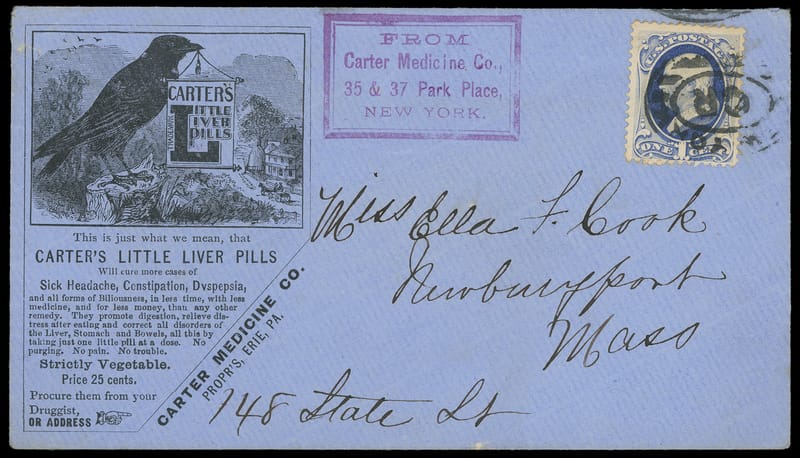 CARTER'S
LITTLE
LIVER
PILLS
TRADE MARK
This is just what we mean, that
CARTER'S LITTLE LIVER PILLS
Will cure more cases of
Sick Headache, Constipation, Dyspepsia,
and all forms of Biliousness, in less time, with less
medicine, and for less money, than any other
remedy. They promote digestion, relieve dis-
tress after eating and correct all disorders of
the Liver, Stomach and Bowels, all this by
taking just one little pill at a dose. No
purging. No pain. No trouble.
Strictly Vegetable.
Price 25 cents.
Procure them from your
Druggist,
OR ADDRESS
CARTER MEDICINE CO.
PROPR'S, ERIE, PA.
FROM
Carter Medicine Co.,
35 & 37 Park Place,
NEW YORK.
U.S. POSTAGE
ONE 1 CENT
Miss Ella F. Cook
Newburyport
Mass
148 State St